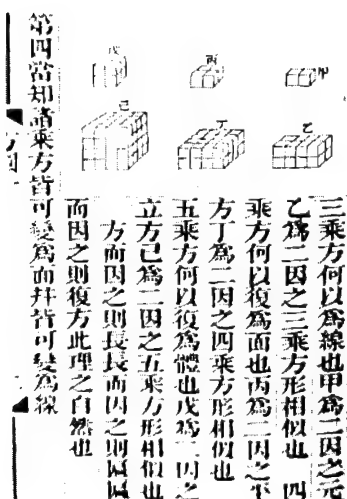 戊
丙
甲
己
丁
乙
三乘方何以爲線也甲爲二因之元
乙爲二因之三乘方形相似也 四
乘方何以復爲面也丙爲二因之平
方丁爲二因之四乘方形相似也
五乘方何以復爲體也戊爲二因之
立方己爲二因之五乘方形相似也
方而因之則長長而因之則匾匾
而因之則復方此理之自然也
第四當知諸乘方皆可變爲面幷皆可變爲線